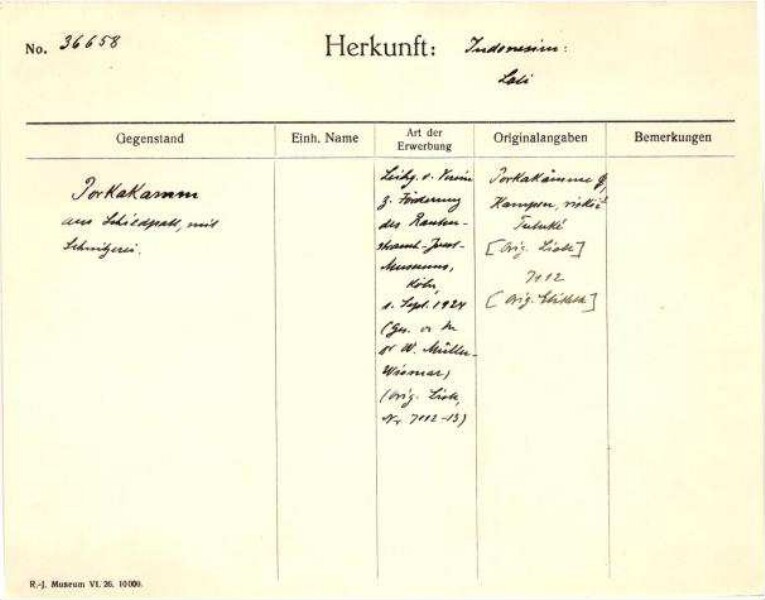 No. 36658
Herkunft: Indonesien:
Leti
Gegenstand
Einh. Name
Art der
Erwerbung
Originalangaben
Bemerkungen
Porkakamm
aus Schildpatt, mit
Schnitzerei.
Leihg. d. Verein
z. Förderung
des Rauten-
strauch-Joest-
Museums,
Köln,
d. Sept. 1924
(Ges. v.
Dr W. Müller-
Wismar)
(Orig. Liste,
Nr 7012-13)
Porkakämme
Kampon,
Tutuké
[Orig. Liste]
7012
[Orig. Etikett]
R.-J. Museum VI. 26. 10000.